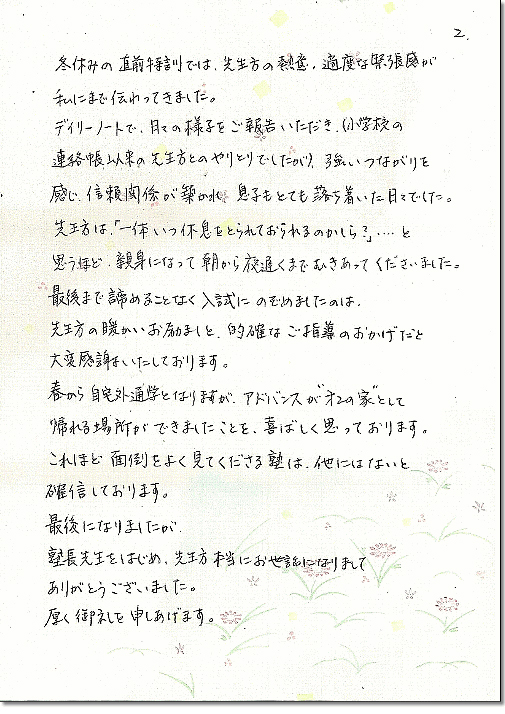 2.
冬休みの直前特訓では、先生方の熱意、適度な緊張感が
私にまで伝わってきました。
デイリーノートで、日々の様子をご報告いただき、(小学校の
連絡帳以来の先生方とのやりとりでしたが)、強いつながりを
感じ、信頼関係が築かれ、息子もとても落ち着いた日々でした。
先生方は、「一体いつ休息をとられておられるのかしら?」‥‥と
思うほど、親身になって朝から夜遅くまでむきあってくださいました。
最後まで諦めることなく入試にのぞめましたのは、
先生方の暖かいお励ましと、的確なご指導のおかげだと
大変感謝をいたしております。
春から自宅外通学となりますが、アドバンスが"才2の家"として
帰れる場所ができましたことを、喜ばしく思っております。
これほど面倒をよく見てくださる塾は、他にはないと
確信しております。
最後になりましたが、
塾長先生をはじめ、先生方本当にお世話になりまして
ありがとうございました。
厚く御礼を申しあげます。